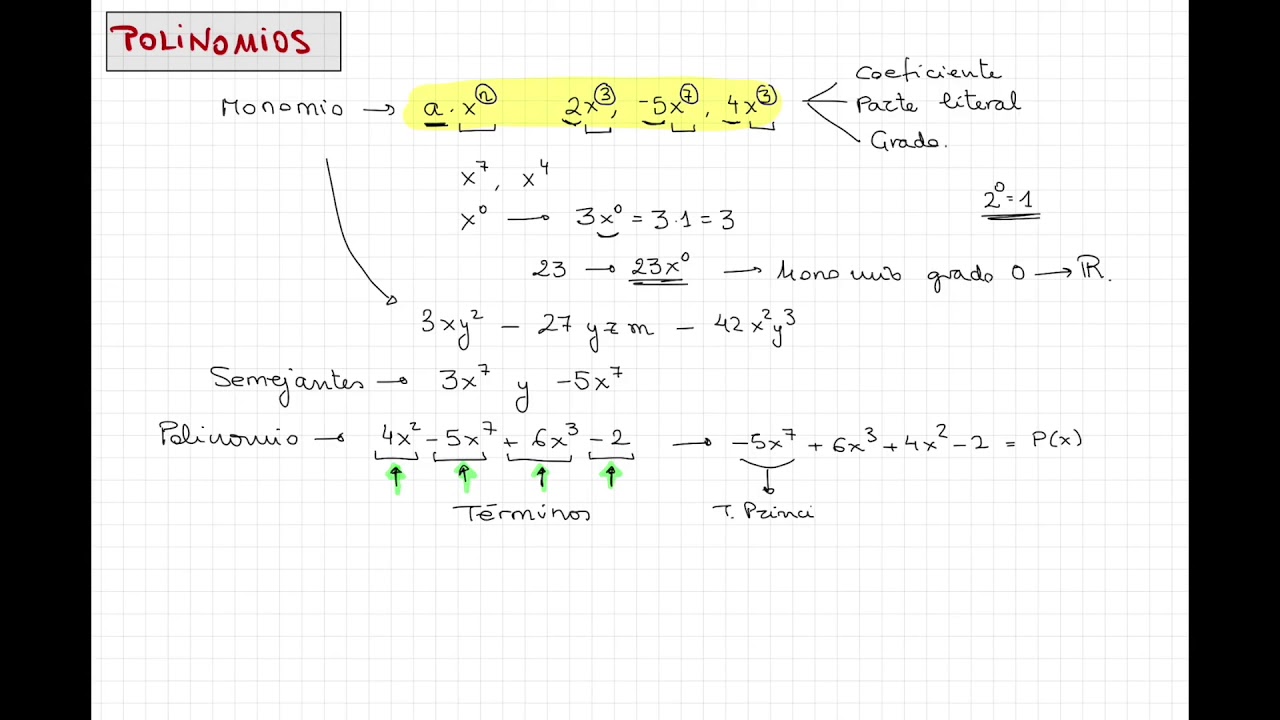 POLINOMIOS
Monomio → a · xⁿ 2x³, -5x⁷, 4x³
Coeficiente
Parte literal
Grado.
x⁷, x⁴
x⁰ — 3x⁰ = 3·1 = 3
2⁰ = 1
23 → 23x⁰ → Monomio grado 0 → ℝ.
3xy² – 27yzm – 42x²y³
Semejantes → 3x⁷ y -5x⁷
Polinomio → 4x² - 5x⁷ + 6x³ - 2 → -5x⁷ + 6x³ + 4x² - 2 = P(x)
Términos
T. Princi